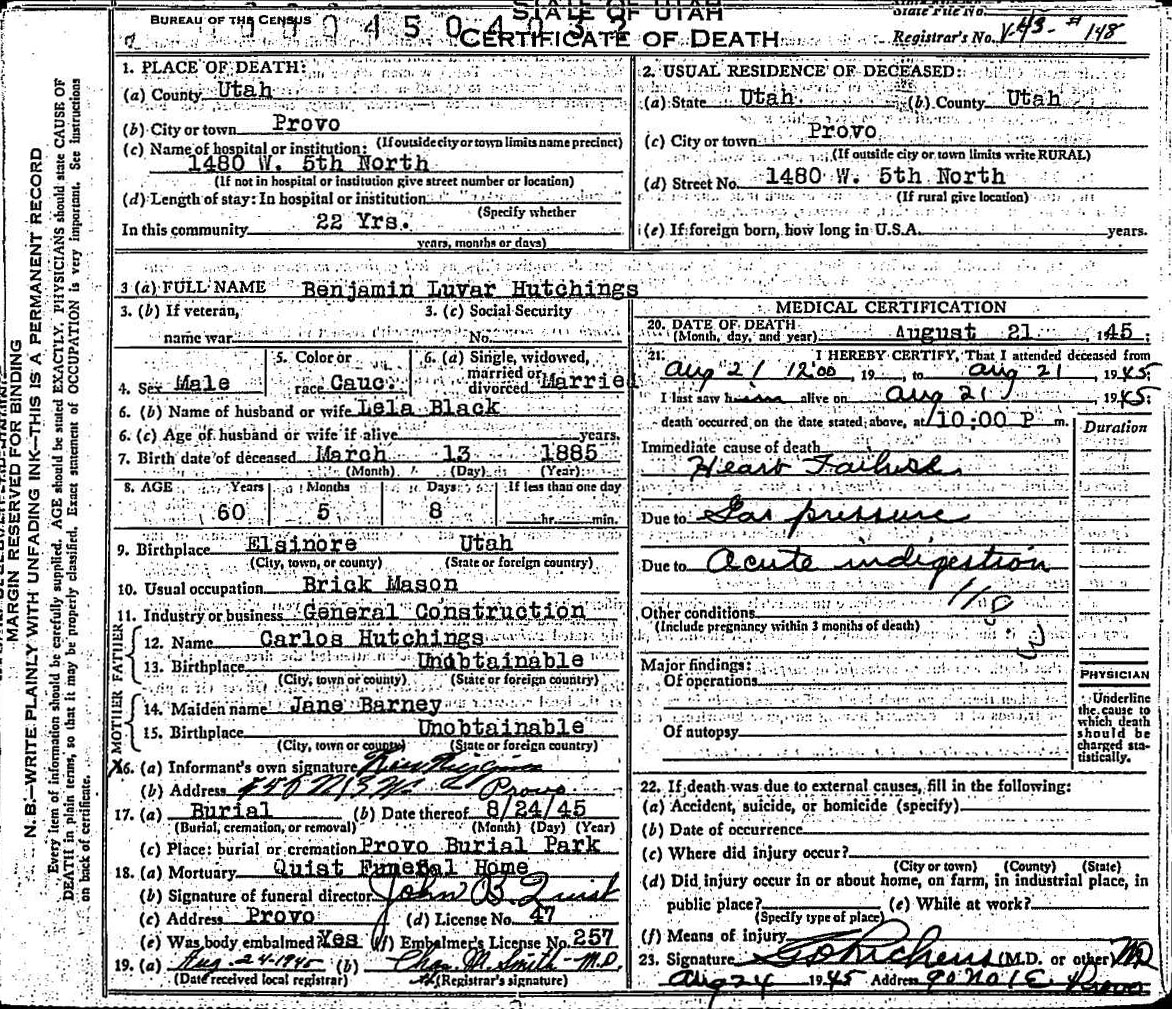 STATE OF UTAH
BUREAU OF THE CENSUS
State File No.
CERTIFICATE OF DEATH
Registrar's No. V-43- # 148
MARGIN RESERVED FOR BINDING
N. B.—WRITE PLAINLY WITH UNFADING INK—THIS IS A PERMANENT RECORD
Every item of information should be carefully supplied. AGE should be stated EXACTLY. PHYSICIANS should state CAUSE OF
DEATH in plain terms, so that it may be properly classified. Exact statement of OCCUPATION is very important. See instructions
on back of certificate.
1. PLACE OF DEATH:
(a) County Utah
(b) City or town Provo
(If outside city or town limits name precinct)
(c) Name of hospital or institution:
1480 W. 5th North
(If not in hospital or institution give street number or location)
(d) Length of stay: In hospital or institution
(Specify whether
In this community 22 Yrs.
years, months or days)
2. USUAL RESIDENCE OF DECEASED:
(a) State Utah (b) County Utah
(c) City or town Provo
(If outside city or town limits write RURAL)
(d) Street No. 1480 W. 5th North
(If rural give location)
(e) If foreign born, how long in U.S.A. years.
3 (a) FULL NAME Benjamin Luvar Hutchings
3. (b) If veteran, 3. (c) Social Security
name war No.
4. Sex Male 5. Color or race Cauc. 6. (a) Single, widowed, married or divorced Married
6. (b) Name of husband or wife Lela Black
6. (c) Age of husband or wife if alive years.
7. Birth date of deceased March 13 1885
(Month) (Day) (Year)
8. AGE Years Months Days If less than one day
60 5 8 hr. min.
9. Birthplace Elsinore Utah
(City, town, or county) (State or foreign country)
10. Usual occupation Brick Mason
11. Industry or business General Construction
FATHER
12. Name Carlos Hutchings
13. Birthplace Unobtainable
(City, town or county) (State or foreign country)
MOTHER
14. Maiden name Jane Barney
15. Birthplace Unobtainable
(City, town or county) (State or foreign country)
16. (a) Informant's own signature
(b) Address Provo
17. (a) Burial (b) Date thereof 8/24/45
(Burial, cremation, or removal) (Month) (Day) (Year)
(c) Place: burial or cremation Provo Burial Park
18. (a) Mortuary Quist Funeral Home
(b) Signature of funeral director John B. Quist
(c) Address Provo (d) License No. 47
(e) Was body embalmed? Yes (f) Embalmer's License No. 257
19. (a) Aug. 24-1945 (b) Chas. M. Smith - M.D.
(Date received local registrar) (Registrar's signature)
MEDICAL CERTIFICATION
20. DATE OF DEATH
(Month, day, and year) August 21 1945
21. I HEREBY CERTIFY, That I attended deceased from
Aug 21 12:00, 19 , to Aug 21, 1945
I last saw him alive on Aug 21, 1945
death occurred on the date stated above, at 10:00 P m.
Duration
Immediate cause of death
Heart Failure
Due to Gas pressure
Due to Acute indigestion
Other conditions
(Include pregnancy within 3 months of death)
Major findings:
Of operations
Of autopsy
PHYSICIAN
Underline
the cause to
which death
should be
charged sta-
tistically.
22. If death was due to external causes, fill in the following:
(a) Accident, suicide, or homicide (specify)
(b) Date of occurrence
(c) Where did injury occur?
(City or town) (County) (State)
(d) Did injury occur in or about home, on farm, in industrial place, in
public place? (e) While at work?
(Specify type of place)
(f) Means of injury
23. Signature Richens (M.D. or other) MD
Aug 24 1945 Address 90 No 1 E. Provo